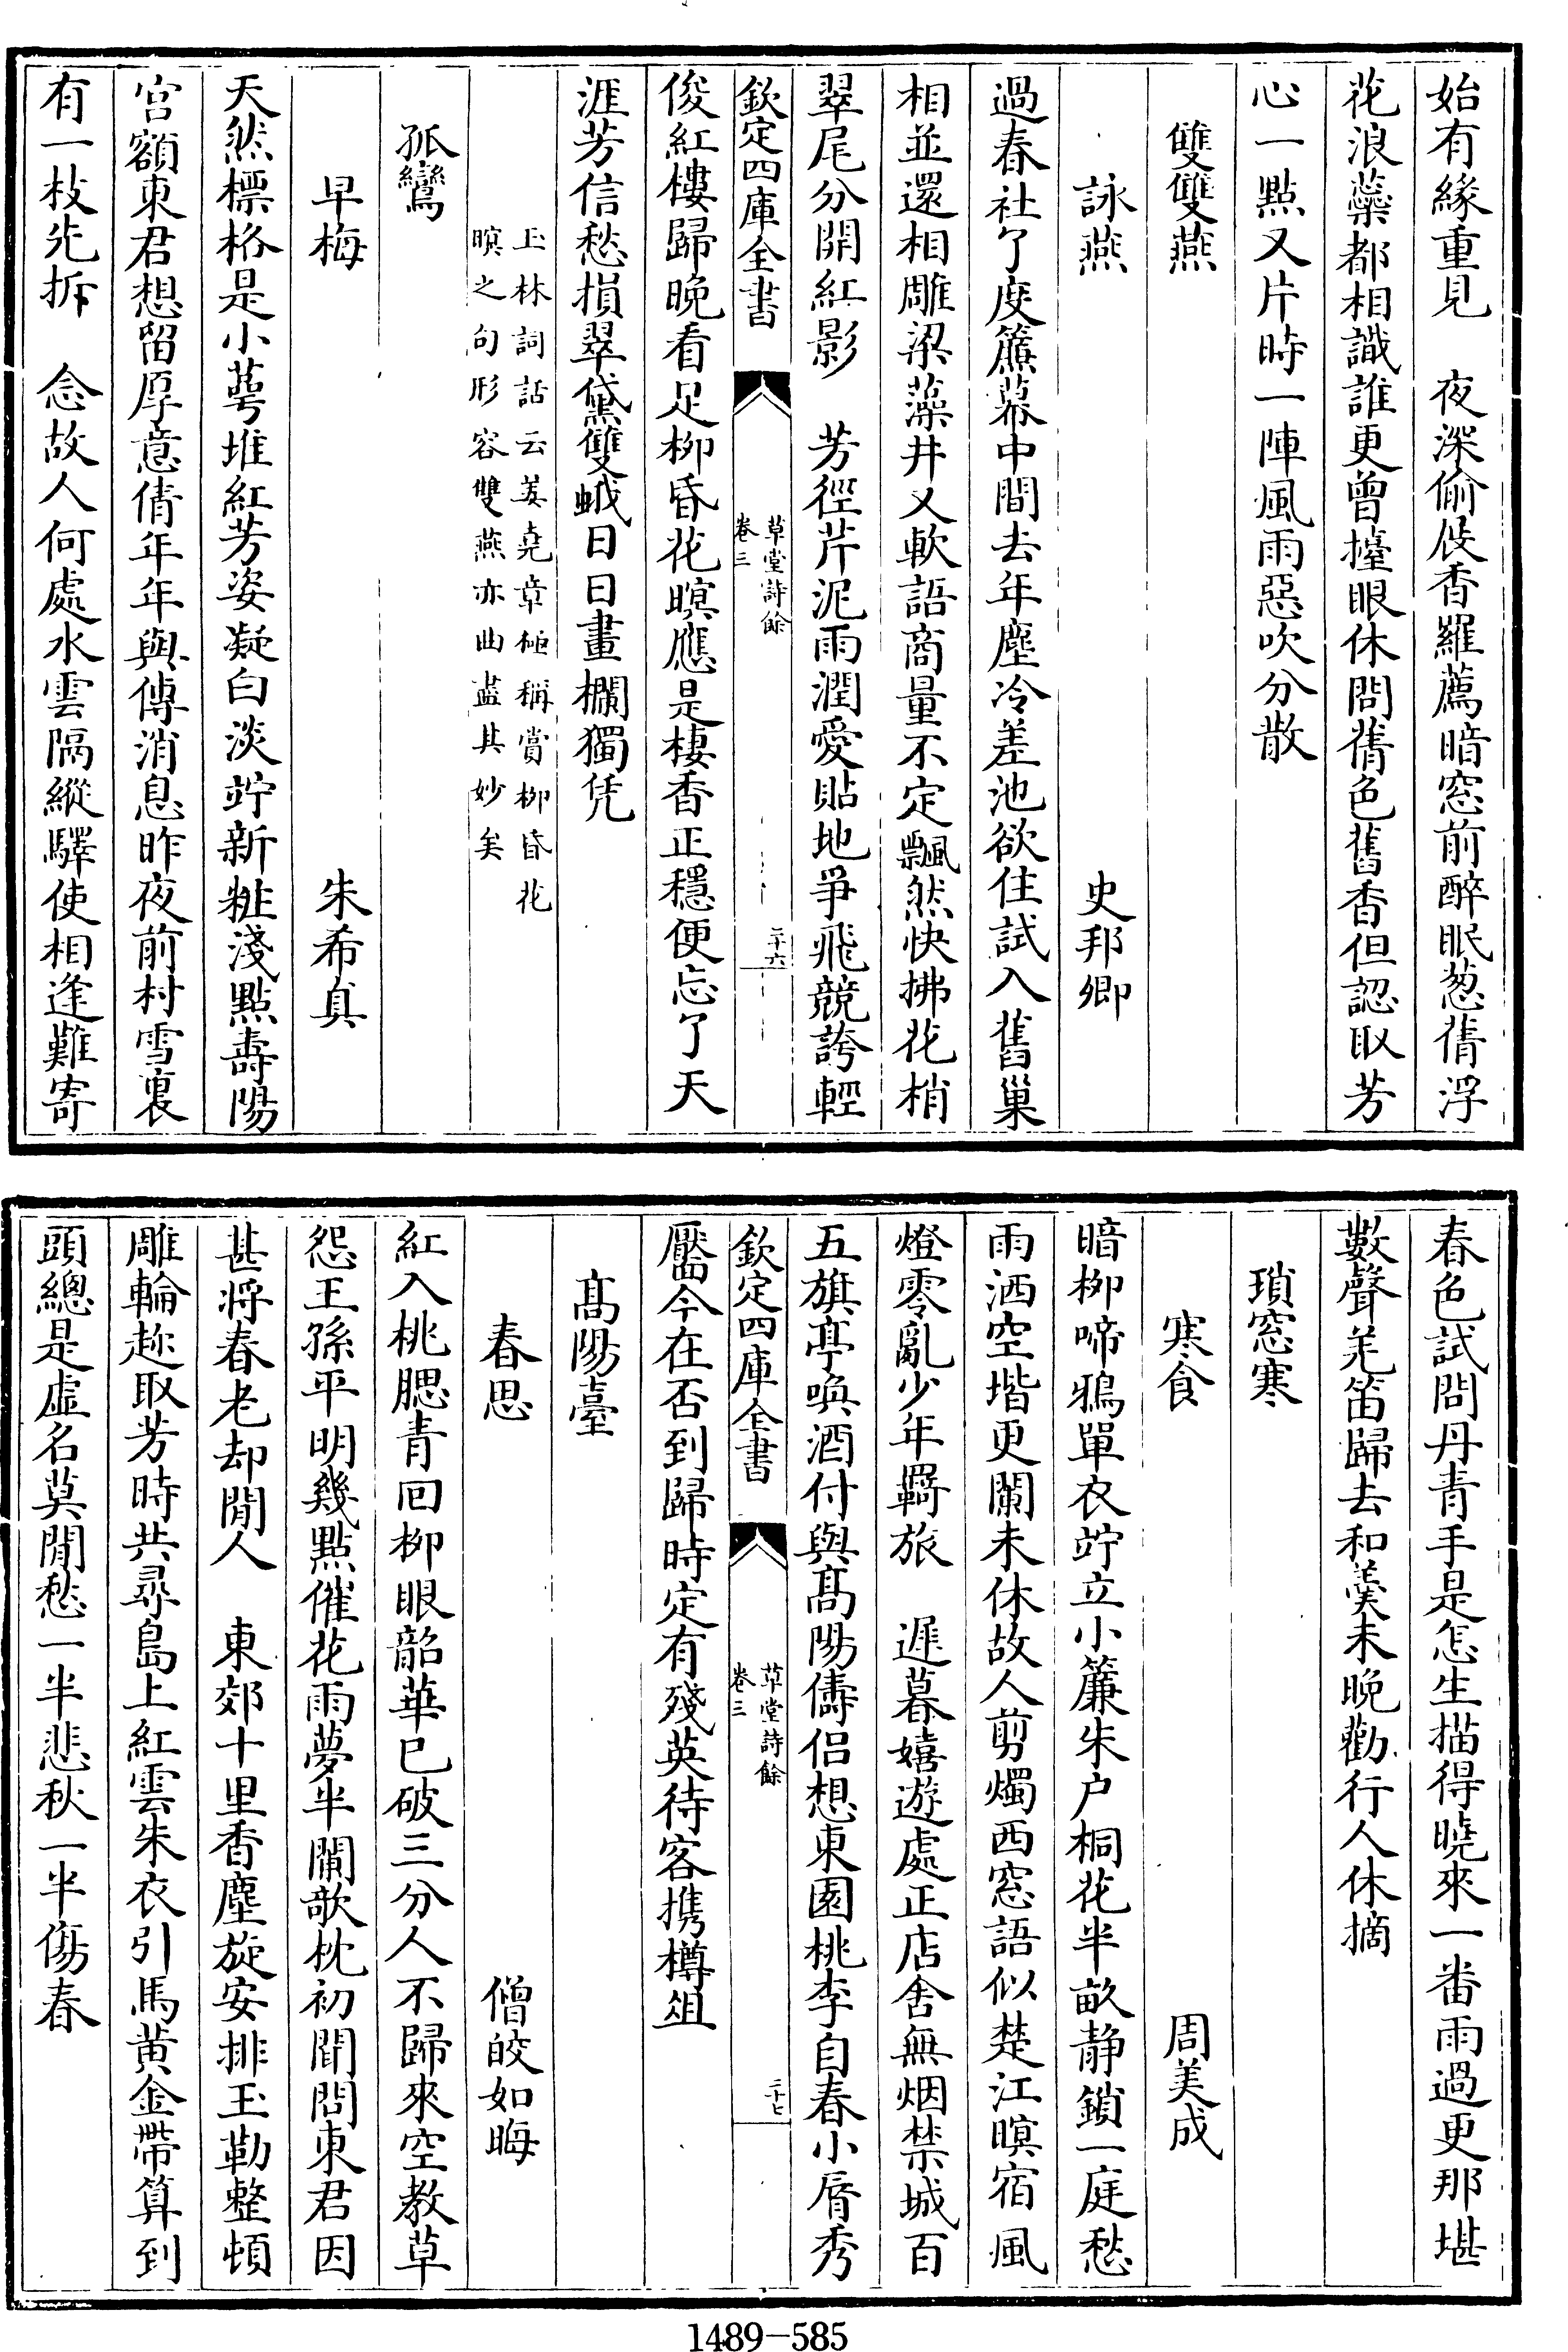 始有緣重見　夜深偷展香羅薦暗窓前醉眠葱蒨浮
花浪蘂都相識誰更曾擡眼休問舊色舊香但認取芳
心一點又片時一陣風雨惡吹分散
雙雙燕
詠燕　史邦卿
過春社了度簾幕中間去年塵冷差池欲住試入舊巢
相並還相雕梁藻井又軟語商量不定飄然快拂花梢
翠尾分開紅影　芳徑芹泥雨潤愛貼地爭飛競誇輕
欽定四庫全書　草堂詩餘
卷三　二十六
俊紅樓歸晚看足柳昏花暝應是棲香正穩便忘了天
涯芳信愁損翠黛雙蛾日日畫欄獨凭
玉林詞話云姜堯章極稱賞柳昏花
暝之句形容雙燕亦曲盡其妙矣
孤鸞
早梅　朱希真
天然標格是小萼堆紅芳姿凝白淡竚新粧淺點壽陽
宮額東君想留厚意倩年年與傳消息昨夜前村雪裏
有一枝先拆　念故人何處水雲隔縱驛使相逢難寄
春色試問丹青手是怎生描得曉來一番雨過更那堪
數聲羌笛歸去和羹未晚勸行人休摘
瑣窓寒
寒食　周美成
暗柳啼鴉單衣竚立小簾朱户桐花半畝静鎖一庭愁
雨洒空堦更闌未休故人剪燭西窓語似楚江暝宿風
燈零亂少年羇旅　遲暮嬉遊處正店舍無烟禁城百
五旗亭喚酒付與髙陽儔侣想東園桃李自春小脣秀
欽定四庫全書　草堂詩餘
卷三　二十七
靨今在否到歸時定有殘英待客攜樽俎
髙陽臺
春思　僧皎如晦
紅入桃腮青回柳眼韶華已破三分人不歸來空教草
怨王孫平明幾點催花雨夢半闌欹枕初聞問東君因
甚將春老却閒人　東郊十里香塵旋安排玉勒整頓
雕輪趂取芳時共尋島上紅雲朱衣引馬黄金帶算到
頭總是虛名莫閒愁一半悲秋一半傷春
1489-585